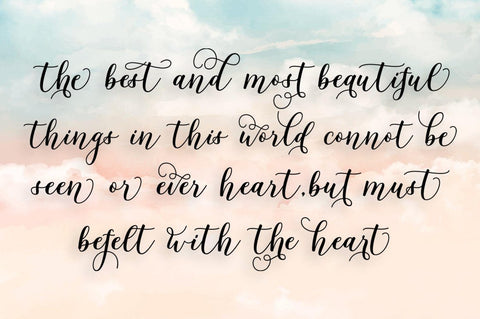 the best and most beautiful
things in this world connot be
seen or ever heart.but must
befelt with the heart